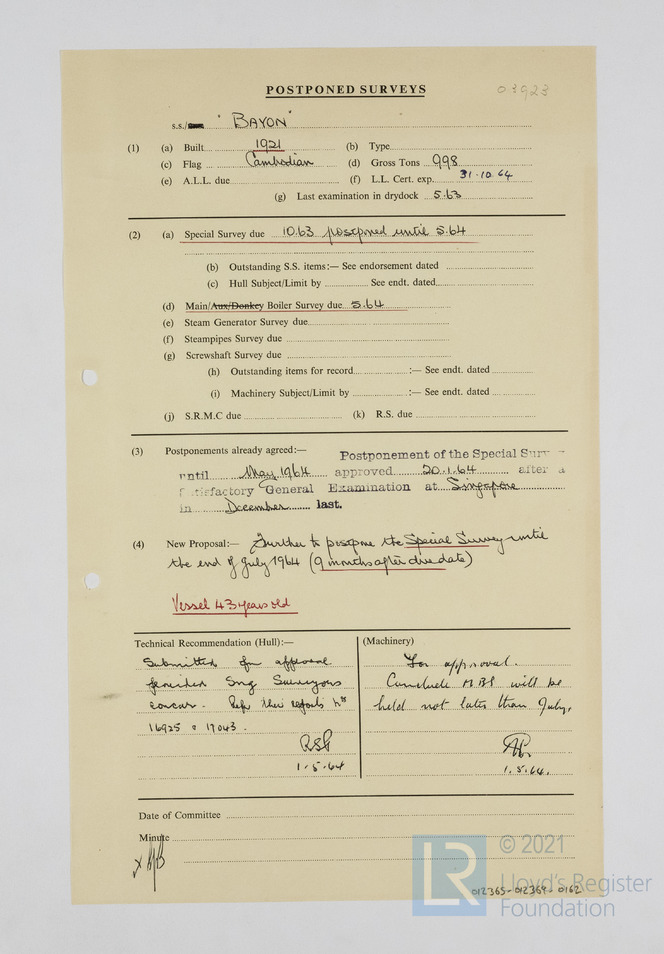 POSTPONED SURVEYS
03923
s.s./ "BAYON"
(1) (a) Built 1921 (b) Type
(c) Flag Cambodian (d) Gross Tons 998
(e) A.L.L. due (f) L.L. Cert. exp. 31.10.64
(g) Last examination in drydock 5.63
(2) (a) Special Survey due 10.63 postponed until 5.64
(b) Outstanding S.S. items:— See endorsement dated
(c) Hull Subject/Limit by See endt. dated
(d) Main/Aux/Donkey Boiler Survey due 5.64
(e) Steam Generator Survey due
(f) Steampipes Survey due
(g) Screwshaft Survey due
(h) Outstanding items for record :— See endt. dated
(i) Machinery Subject/Limit by :— See endt. dated
(j) S.R.M.C due (k) R.S. due
(3) Postponements already agreed:— Postponement of the Special Surv
until May 1964 approved 20.1.64 after a
satisfactory General Examination at Singapore
in December last.
(4) New Proposal:— Further to postpone the Special Survey until
the end of July 1964 (9 months after due date)
Vessel 43 years old
Technical Recommendation (Hull):—
Submitted for approval
provided Sng Surveyors
concur. Refer their reports Nos
16925 & 17043.
RSP
1.5.64
(Machinery)
For approval.
Conclude MBS will be
held not later than July.
1.5.64.
Date of Committee
Minute
LR © 2021
Lloyd's Register
Foundation
012365-012369-0162